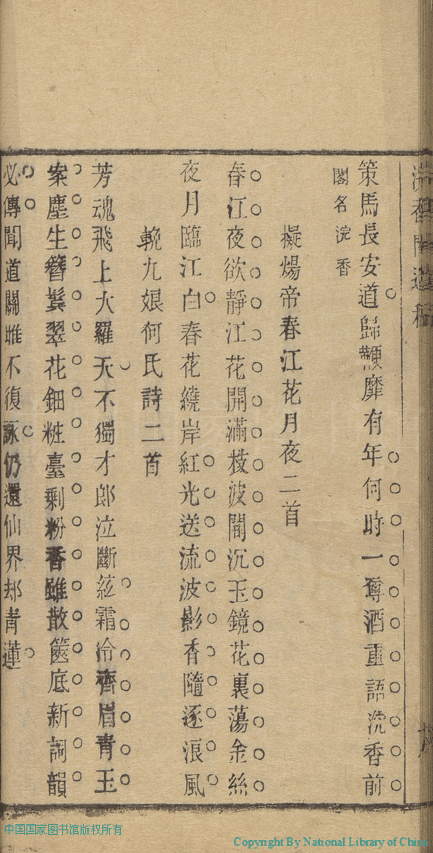 浣香閣遺稿
策馬長安道歸鞭靡有年何時一尊酒重語浣香前
閣名浣香
擬煬帝春江花月夜二首
春江夜欲靜江花開滿枝波開沉玉鏡花裏蕩金絲
夜月臨江白春花繞岸紅光送流波影香隨逐浪風
輓九娘何氏詩二首
芳魂飛上大羅天不獨才郎泣斷絃霜冷齊眉青玉
案塵生簪鬂翠花鈿粧臺剩粉香雖散篋底新詞韻
必傳聞道關雎不復詠仍還仙界刼青蓮
中国国家图书馆版权所有
Copyright By National Library of China